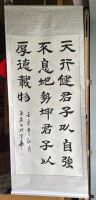 天行健君子以自強
不息地勢坤君子以
厚德載物